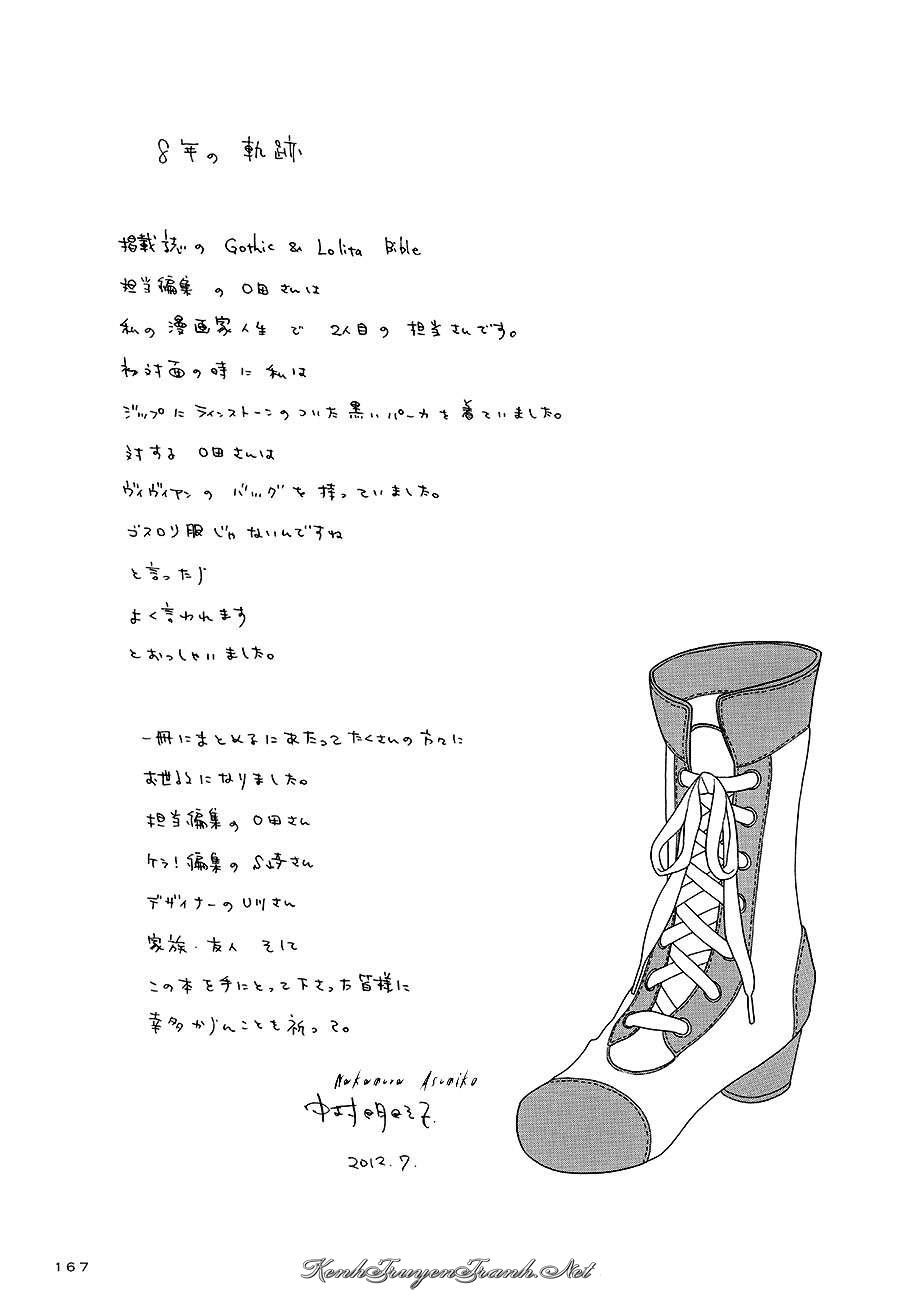 8年の 軌跡
掲載誌の Gothic & Lolita Bible
担当編集 の O田さんは
私の 漫画家人生 で 2人目の 担当さんです。
初対面の時に 私は
ジップに ラインストーンのついた 黒いパーカを 着ていました。
対する O田さんは
ヴィヴィアンの バッグを 持っていました。
ゴスロリ服じゃないんですね
と言ったら
よく言われます
とおっしゃいました。
一冊にまとめるにあたってたくさんの方々に
お世話になりました。
担当編集の O田さん
ケラ!編集の S崎さん
デザイナーの U川さん
家族・友人 そして
この本を手にとって下さった皆様に
幸多からんことを祈って。
Nakamura Asumiko
中村明日美子
2012.7.
167
KenhTruyenTranh.Net